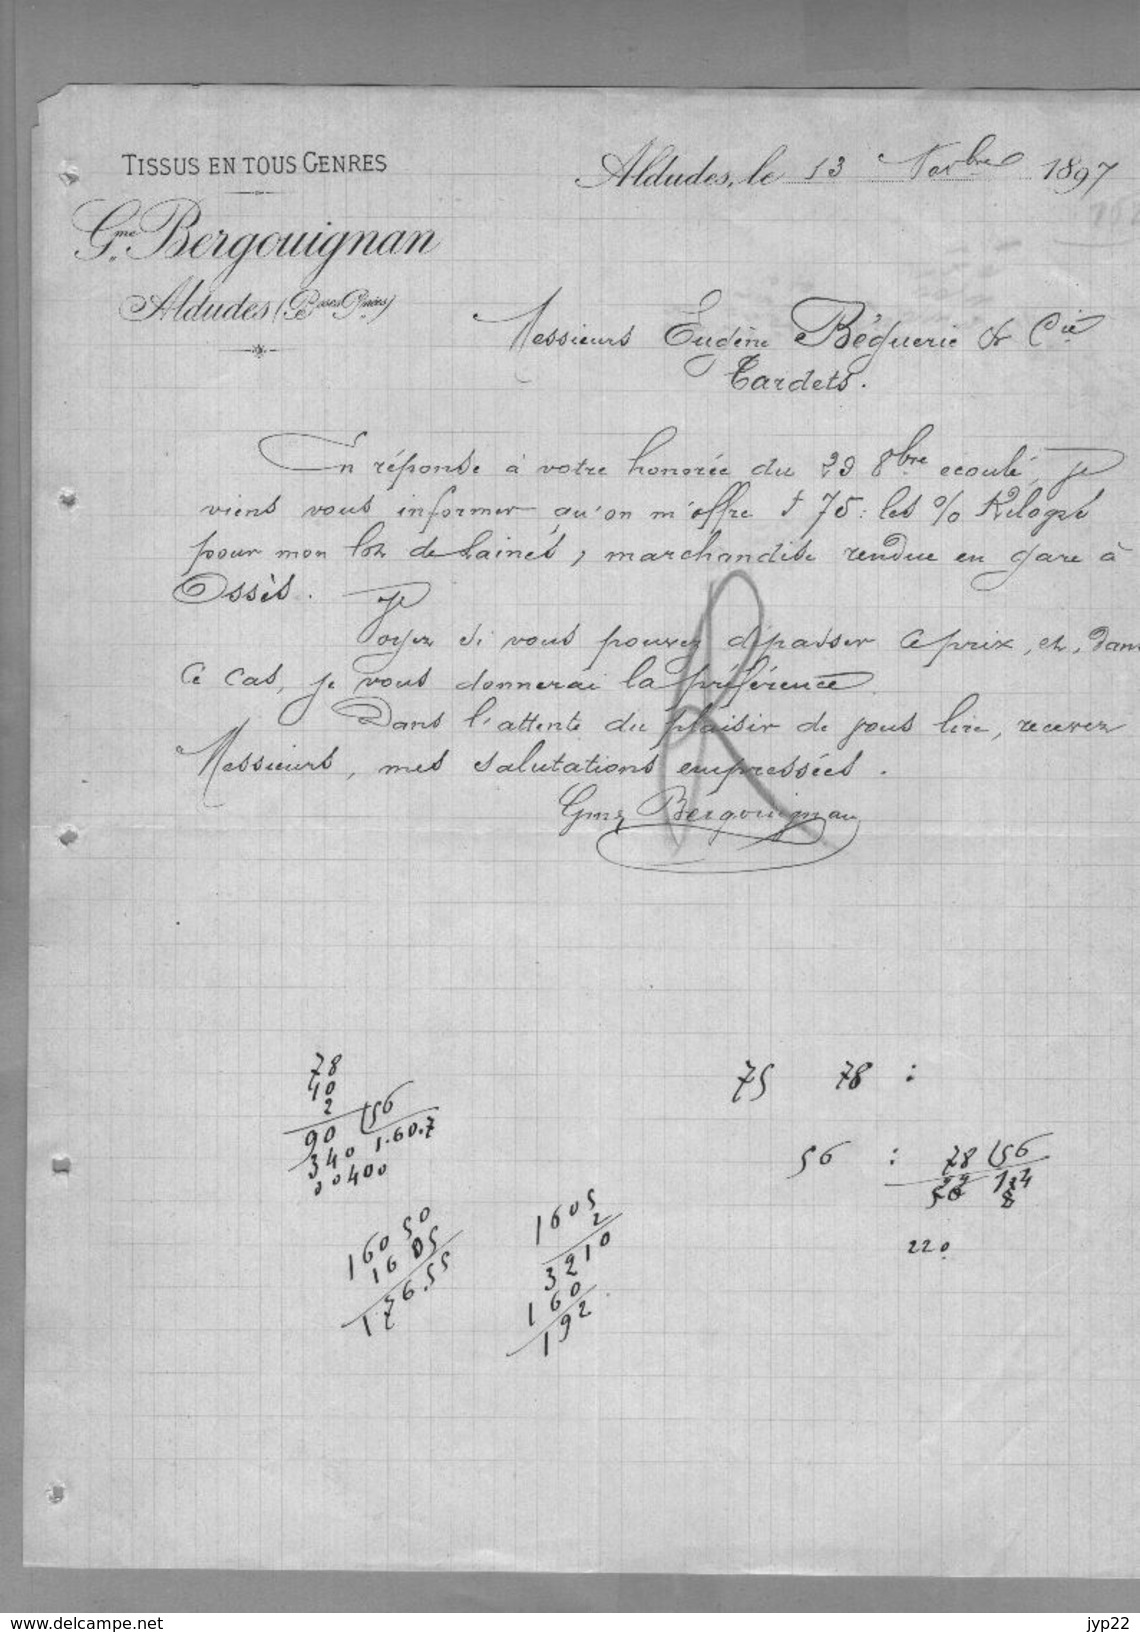 TISSUS EN TOUS GENRES
Gme. Bergouignan
Aldudes (Bses Pnées)
Aldudes, le 13 Novbre 1897
Messieurs Eugène Béguerie & Cie
Tardets.
En réponse à votre honorée du 29 8bre ecoulé, je
viens vous informer qu'on m'offre f 75: les % Kilogs
pour mon lot de laines, marchandise rendue en gare à
Ossès.
Voyez si vous pouvez dépasser ce prix, et, dans
ce cas, je vous donnerai la préférence.
Dans l'attente du plaisir de vous lire, recevez
Messieurs, mes salutations empressées.
Gme Bergouignan
78
40
2
90 56
340 1.60.7
00400
75 78 :
56 : 78 56
220
16050
1605
176.55
1605
2
3210
160
192
www.delcampe.net
jyp22